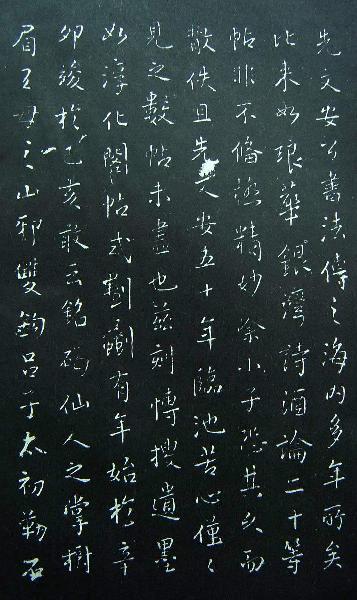 先文安公書法傳之海內多年所矣
比来如琅華銀灣詩酒論二十等
帖非不備極精妙余小子恐其久而
散佚且先文安五十年臨池苦心僅〻
見之數帖未盡也茲刻博搜遺墨
如淳化閣帖式剞劂有年始於辛
卯竣於己亥敢云銘碣仙人之掌樹
眉王母之山邪雙鉤呂子太初勒石